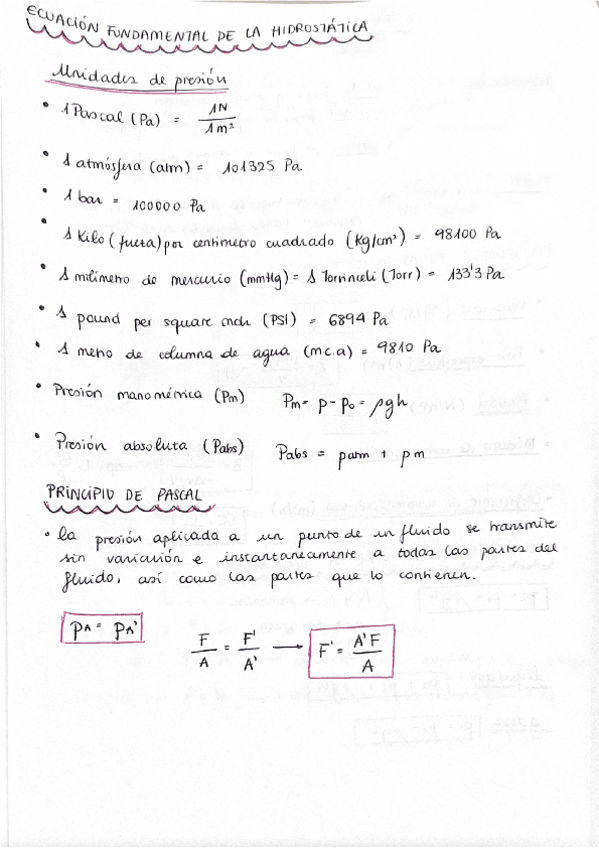 ECUACIÓN FUNDAMENTAL DE LA HIDROSTÁTICA
Unidades de presión
• 1 Pascal (Pa) = 1N / 1m²
• 1 atmósfera (atm) = 101325 Pa
• 1 bar = 100000 Pa
• 1 Kilo (fuerza) por centimetro cuadrado (Kg/cm²) = 98100 Pa
• 1 milimetro de mercurio (mmHg) = 1 Torrinceli (Torr) = 133'3 Pa
• 1 pound per square inch (PSI) = 6894 Pa
• 1 metro de columna de agua (mc.a) = 9810 Pa
• Presión manométrica (Pm) Pm = p - p₀ = ρgh
• Presión absoluta (Pabs) Pabs = patm + pm
PRINCIPIO DE PASCAL
• la presión aplicada a un punto de un fluido se transmite
sin variación e instantaneamente a todas las partes del
fluido, así como las partes que lo contienen.
PA = PA'
F / A = F' / A' → F' = A'F / A